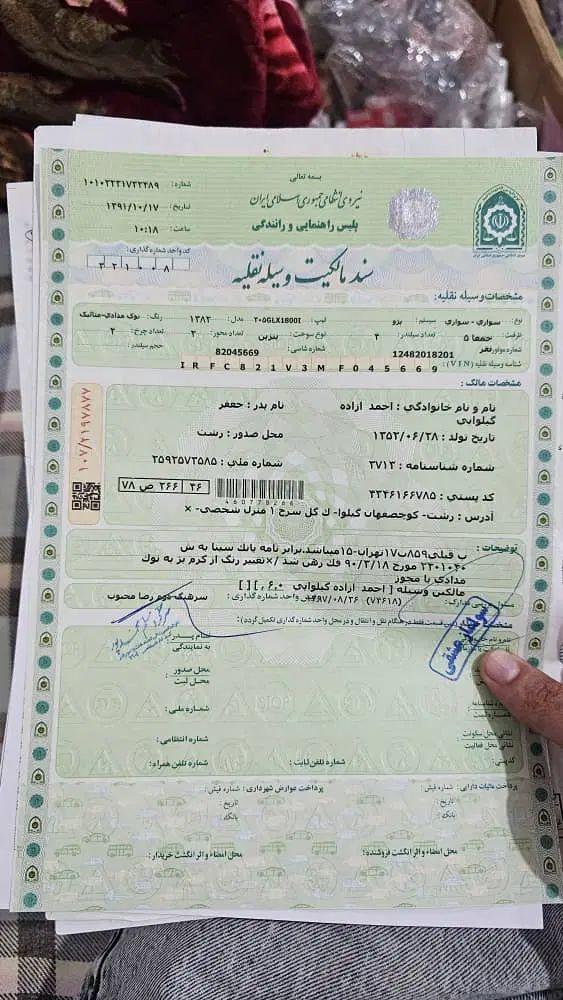 بسمه تعالی
نیروی انتظامی جمهوری اسلامی ایران
پلیس راهنمایی و رانندگی
شماره: ۱۰۱۰۲۲۳۱۷۳۳۴۸۹
تاریخ: ۱۳۹۱/۱۰/۱۷
ساعت: ۱۰:۱۸
کد واحد شماره گذاری:
۲۲۱۰۰۸
سند مالکیت وسیله نقلیه
مشخصات وسیله نقلیه:
نوع: سواری - سواری سیستم: پژو تیپ: ۲۰۵GLX1800I مدل: ۱۳۸۲ رنگ: نوک مدادی-متالیک
ظرفیت: جمعا ۵ نفر تعداد سیلندر: ۴ نوع سوخت: بنزین تعداد محور: ۲ تعداد چرخ: ۴
شماره موتور: 12482018201 شماره شاسی: 82045669 حجم سیلندر:
شناسه وسیله نقلیه (VIN): IRFC821V3MF045669
مشخصات مالک:
نام و نام خانوادگی: احمد آزاده گیلوایی نام پدر: جعفر
تاریخ تولد: ۱۳۵۲/۰۶/۲۸ محل صدور: رشت
شماره شناسنامه: ۳۷۱۳ شماره ملی: ۲۵۹۲۵۷۳۵۸۵
کد پستی: ۴۳۴۶۱۶۶۷۸۵
۴۶ ۲۶۶ ص ۷۸
460778266
آدرس: رشت- کوچصفهان گیلوا- ک گل سرخ ۱ منزل شخصی- ×
۱۰۷/۲۱۹۷۸۷۷
توضیحات:
پ قبلی۸۵۹ب۱۷تهران-۱۵میباشد.برابر نامه بانک سینا به ش
۲۲۰۱۰۴۰ مورخ ۹۰/۳/۱۸ فک رهن شد /×تغییر رنگ از کرم یژ به نوک
مدادی با مجوز
مالکین وسیله [ احمد آزاده گیلوایی ۶.۰ ,] [ ]
(۷۴۶۱۸) ۱۳۹۷/۰۸/۲۶ واحد شماره گذاری: سرهنگ دوم رضا محبوب
نام پدر:
به نمایندگی:
محل صدور
محل ثبت
شماره ملی:
نشانی محل سکونت
نشانی محل فعالیت
شماره انتظامی:
کدپستی:
شماره تلفن ثابت:
شماره تلفن همراه:
پرداخت مالیات دارایی: شماره فیش:
تاریخ:
بانک:
پرداخت عوارض شهرداری: شماره فیش:
تاریخ:
بانک:
محل امضاء و اثر انگشت فروشنده:
محل امضاء و اثر انگشت خریدار: